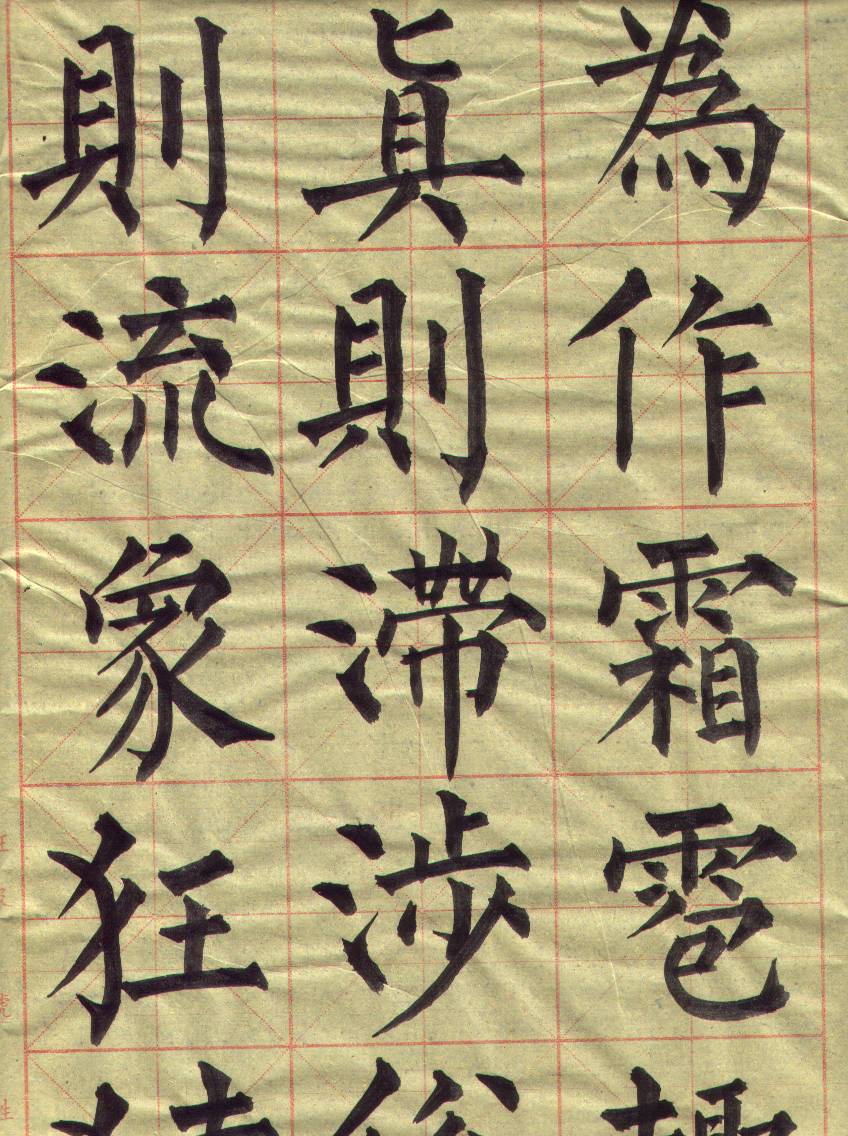 為作霜雹
眞則滯涉
則流象狂